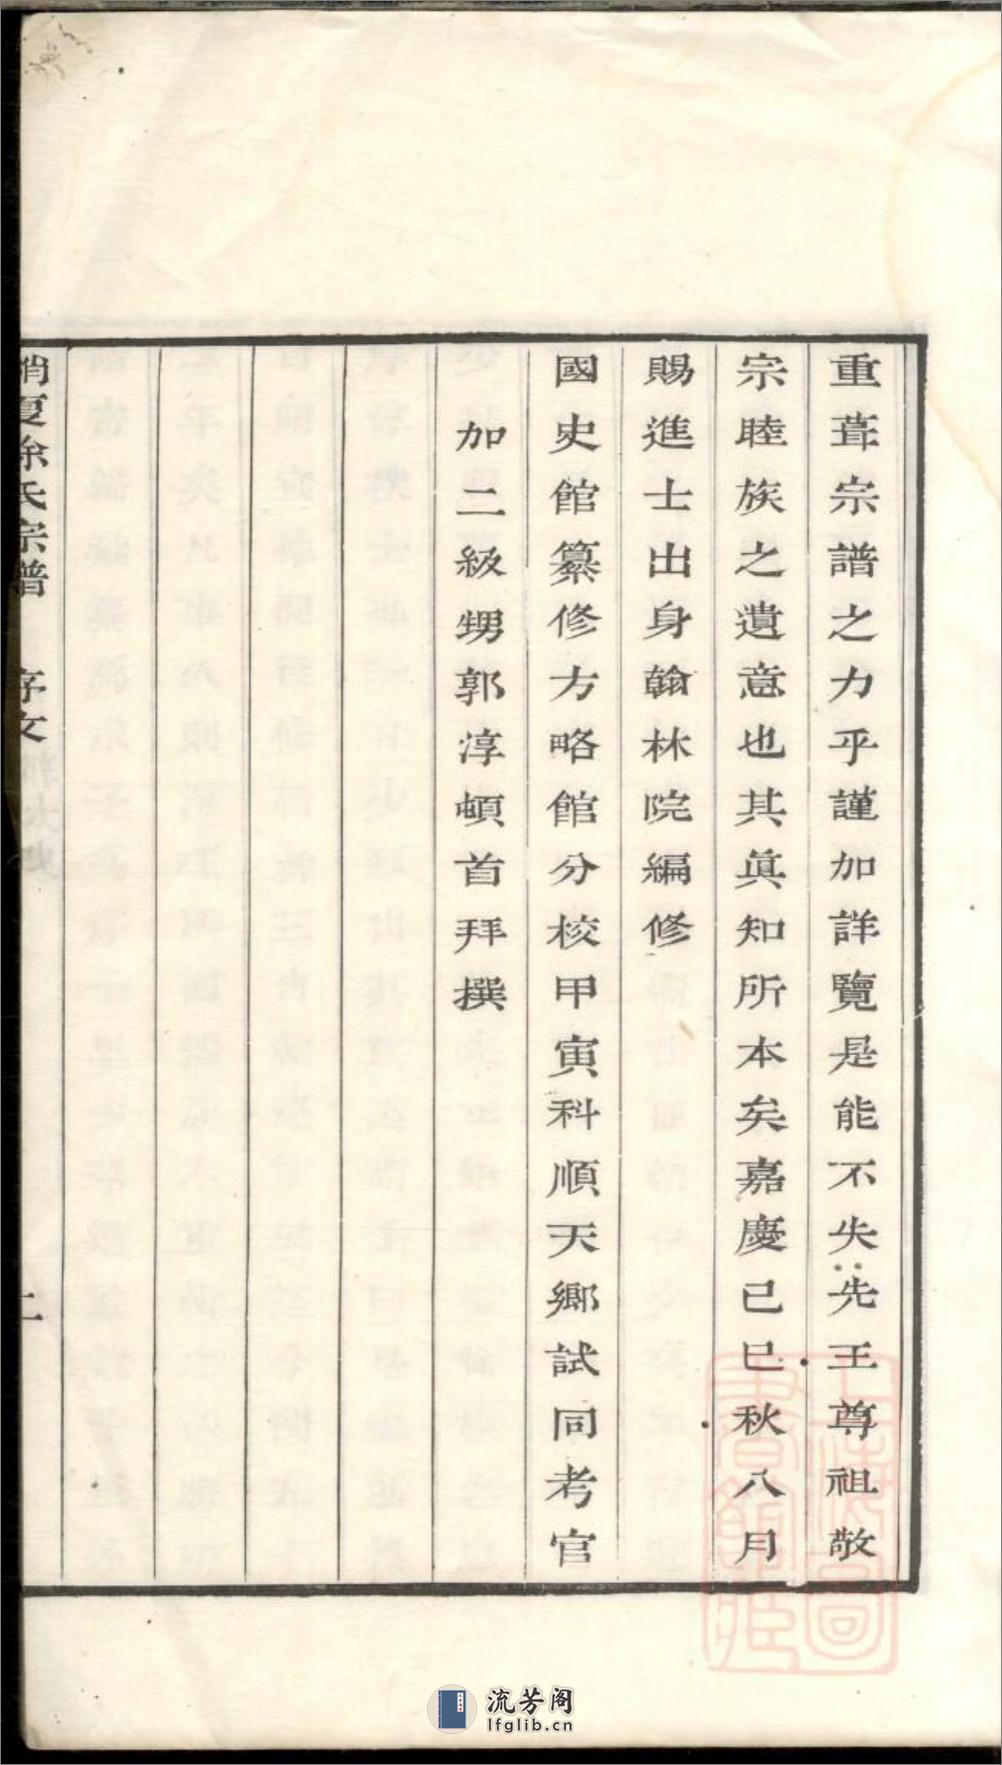 重葺宗譜之力乎謹加詳覽是能不失先王尊祖敬
宗睦族之遺意也其眞知所本矣嘉慶己巳秋八月
賜進士出身翰林院編修
國史館纂修方略館分校甲寅科順天鄉試同考官
加二級甥郭淳頓首拜撰
消夏余氏宗譜 序文
上海圖書館藏
流芳阁
lfglib.cn